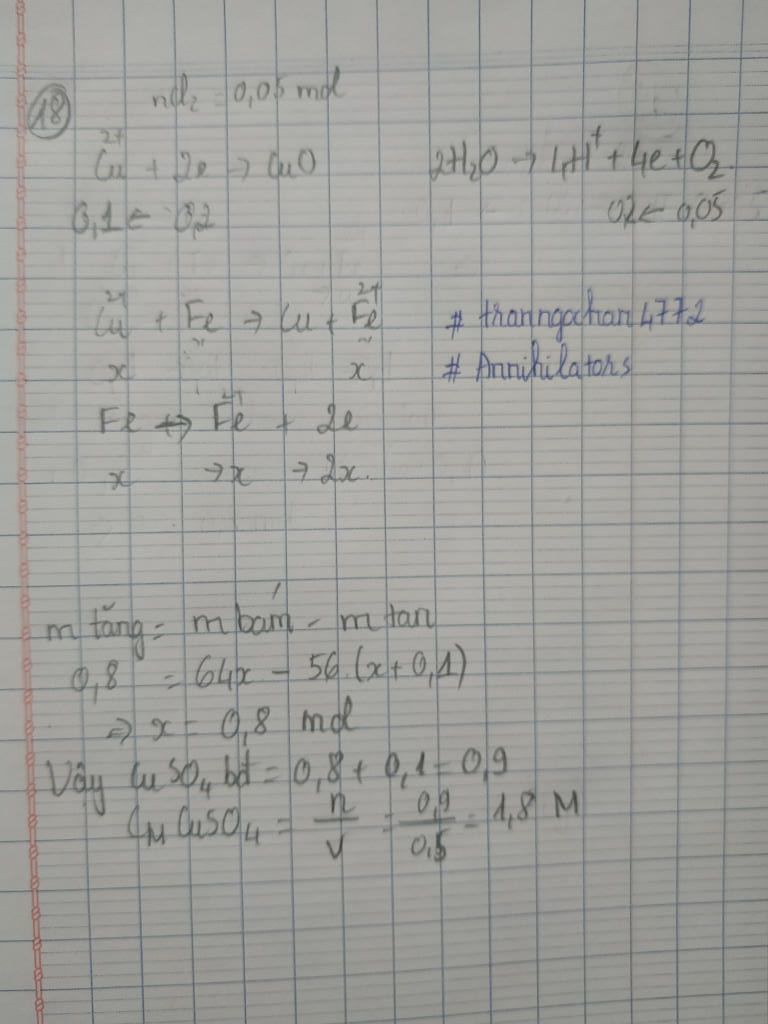 18
nO₂ = 0,05 mol
Cu²⁺ + 2e → CuO
2H₂O → 4H⁺ + 4e + O₂
0,1 ← 0,2
0,2 ← 0,05
Cu²⁺ + Fe → Cu + Fe²⁺
# tranngochan4772
x x
# Annihilators
Fe → Fe²⁺ + 2e
x → x → 2x.
m tăng = m bám - m tan
0,8 = 64x - 56.(x+0,1)
⇒ x = 0,8 mol
Vậy CuSO₄ bđ = 0,8 + 0,1 = 0,9
C_M CuSO₄ = n/V = 0,9/0,5 = 1,8 M